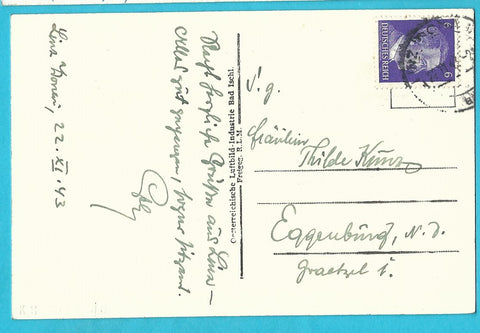 Linz / Donau, 22. XI. 43
Recht herzliche Grüße aus Linz –
Alles gut gegangen,
Oesterreichische Luftbild-Industrie Bad Ischl.
Freigeg. R.L.M.
6 DEUTSCHES REICH 6
Fräulein
Thilde Kunz
Eggenburg, N. D.